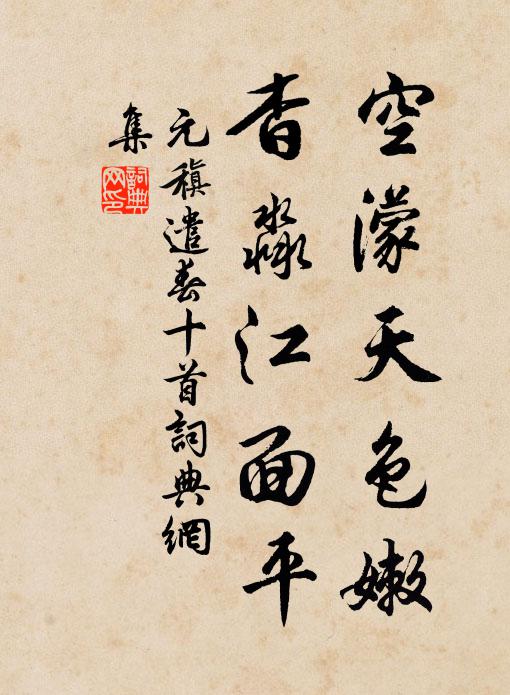 空濛天色嫩
杳淼江面平
元稹遣春十首詞典網
集
詞典
网印